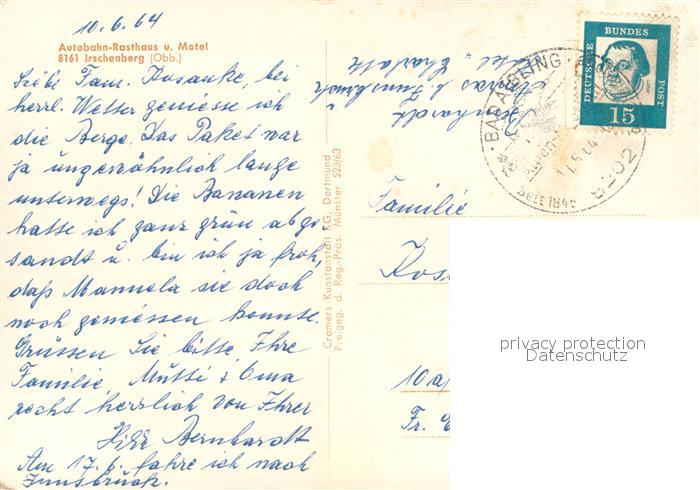 10.6.64
Autobahn-Rasthaus u. Motel
8161 Irschenberg (Obb.)
Liebe Fam. Kosanke, bei
herrl. Wetter geniesse ich
die Berge. Das Paket war
ja ungewöhnlich lange
unterwegs! Die Bananen
hatte ich ganz grün abge
sandt u. bin ich ja froh,
daß Manuela sie doch
noch geniessen konnte.
Grüssen Sie bitte Ihre
Familie, Mutti & Oma
recht herzlich von Ihrer
Hilde Bernhardt
Am 17.6. fahre ich nach
Innsbruck.
Cramers Kunstanstalt KG, Dortmund
Freigeg. d. Reg.-Präs. Münster 523/63
Bernhardt
b. Innsbruck
Hotel „Charlotte"
BAD AIBLING
8202
DEUTSCHE BUNDES POST
15
Familie
Kos
10a/
Fr.
privacy protection
Datenschutz